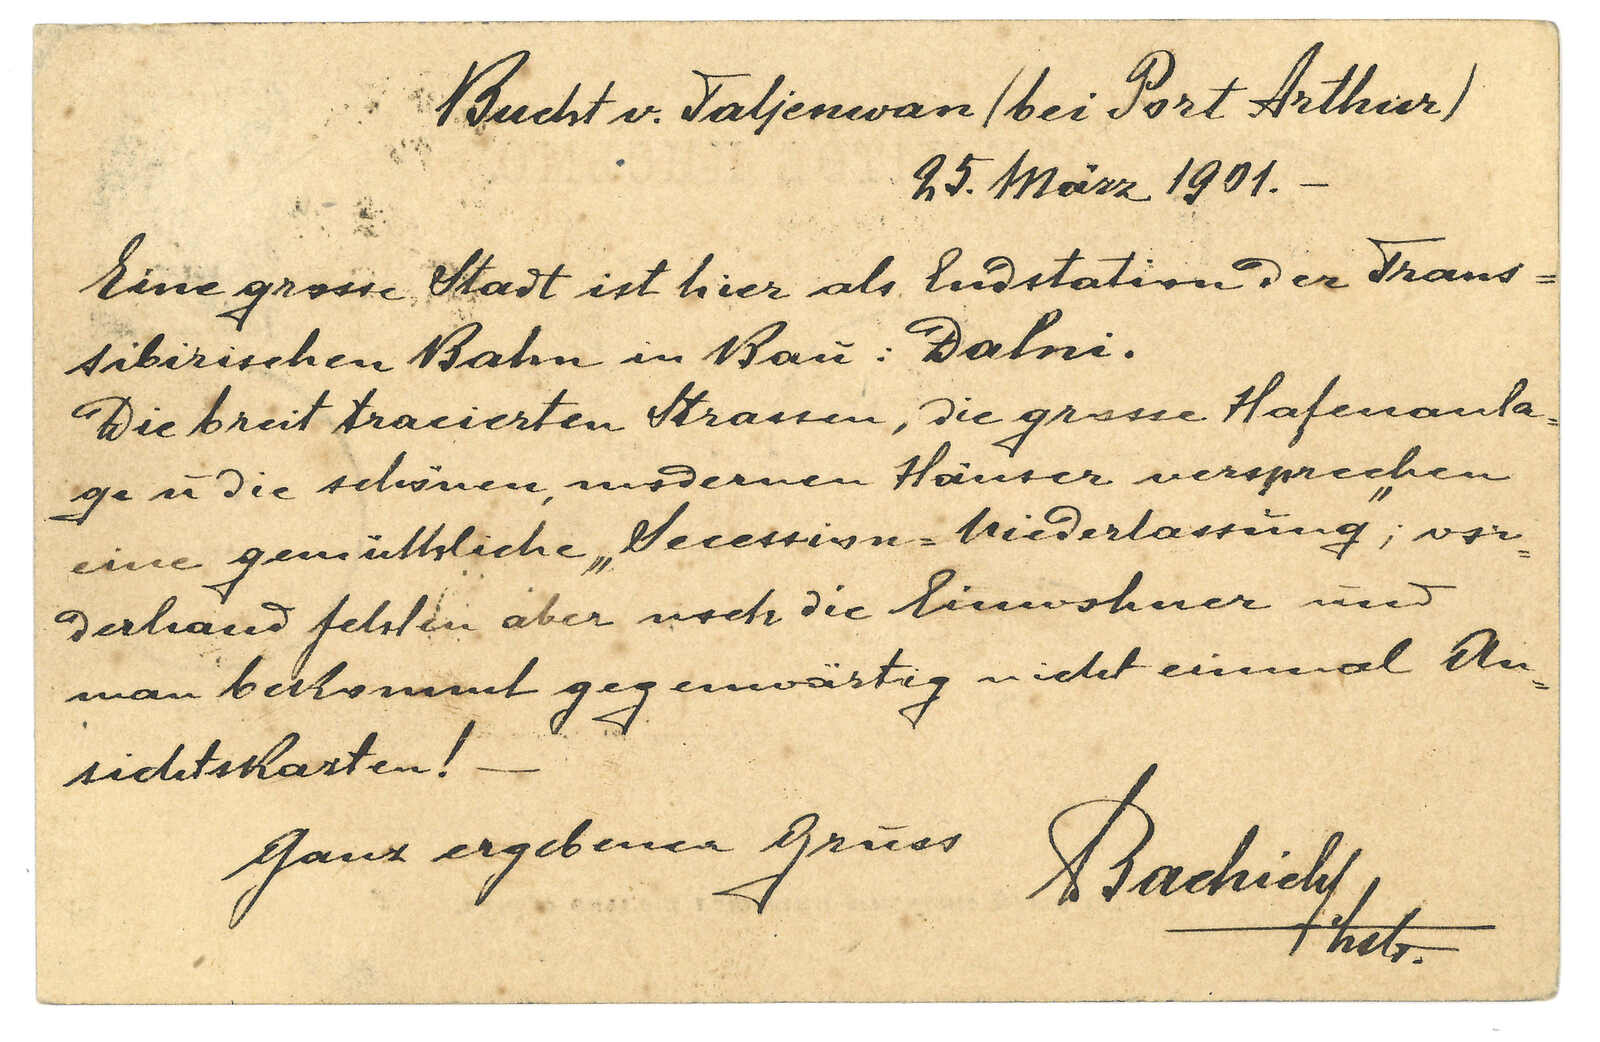 Bucht v. Taljenwan (bei Port Arthur)
25. März 1901. –
Eine grosse Stadt ist hier als Endstation der Trans=
sibirischen Bahn in Bau : Dalni.
Die breit tracierten Strassen, die grosse Hafenanla=
ge u die schönen, modernen Häuser versprechen
eine gemüthliche „Secession=Niederlassung“; vor=
derhand fehlen aber noch die Einwohner und
man bekommt gegenwärtig nicht einmal An=
sichtskarten! –
Ganz ergebener Gruss
Bachich